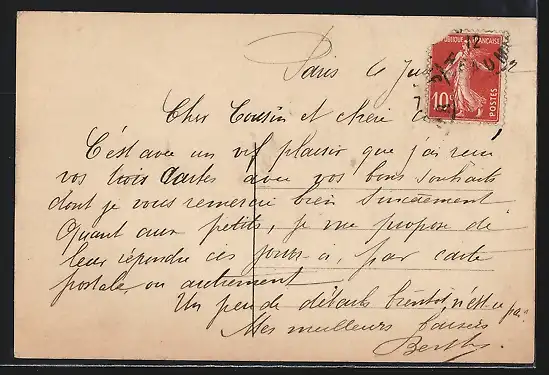 Paris le
RÉPUBLIQUE FRANÇAISE
10c
POSTES
Cher Cousin et chère
C'est avec un vif plaisir que j'ai reçu
vos trois cartes avec vos bons souhaits
dont je vous remercie bien sincèrement
Quant aux petits, je me propose de
leur répondre ces jours-ci, par carte
postale ou autrement
Un peu de détails bientôt n'est-ce pas
Mes meilleurs baisers
Berthe